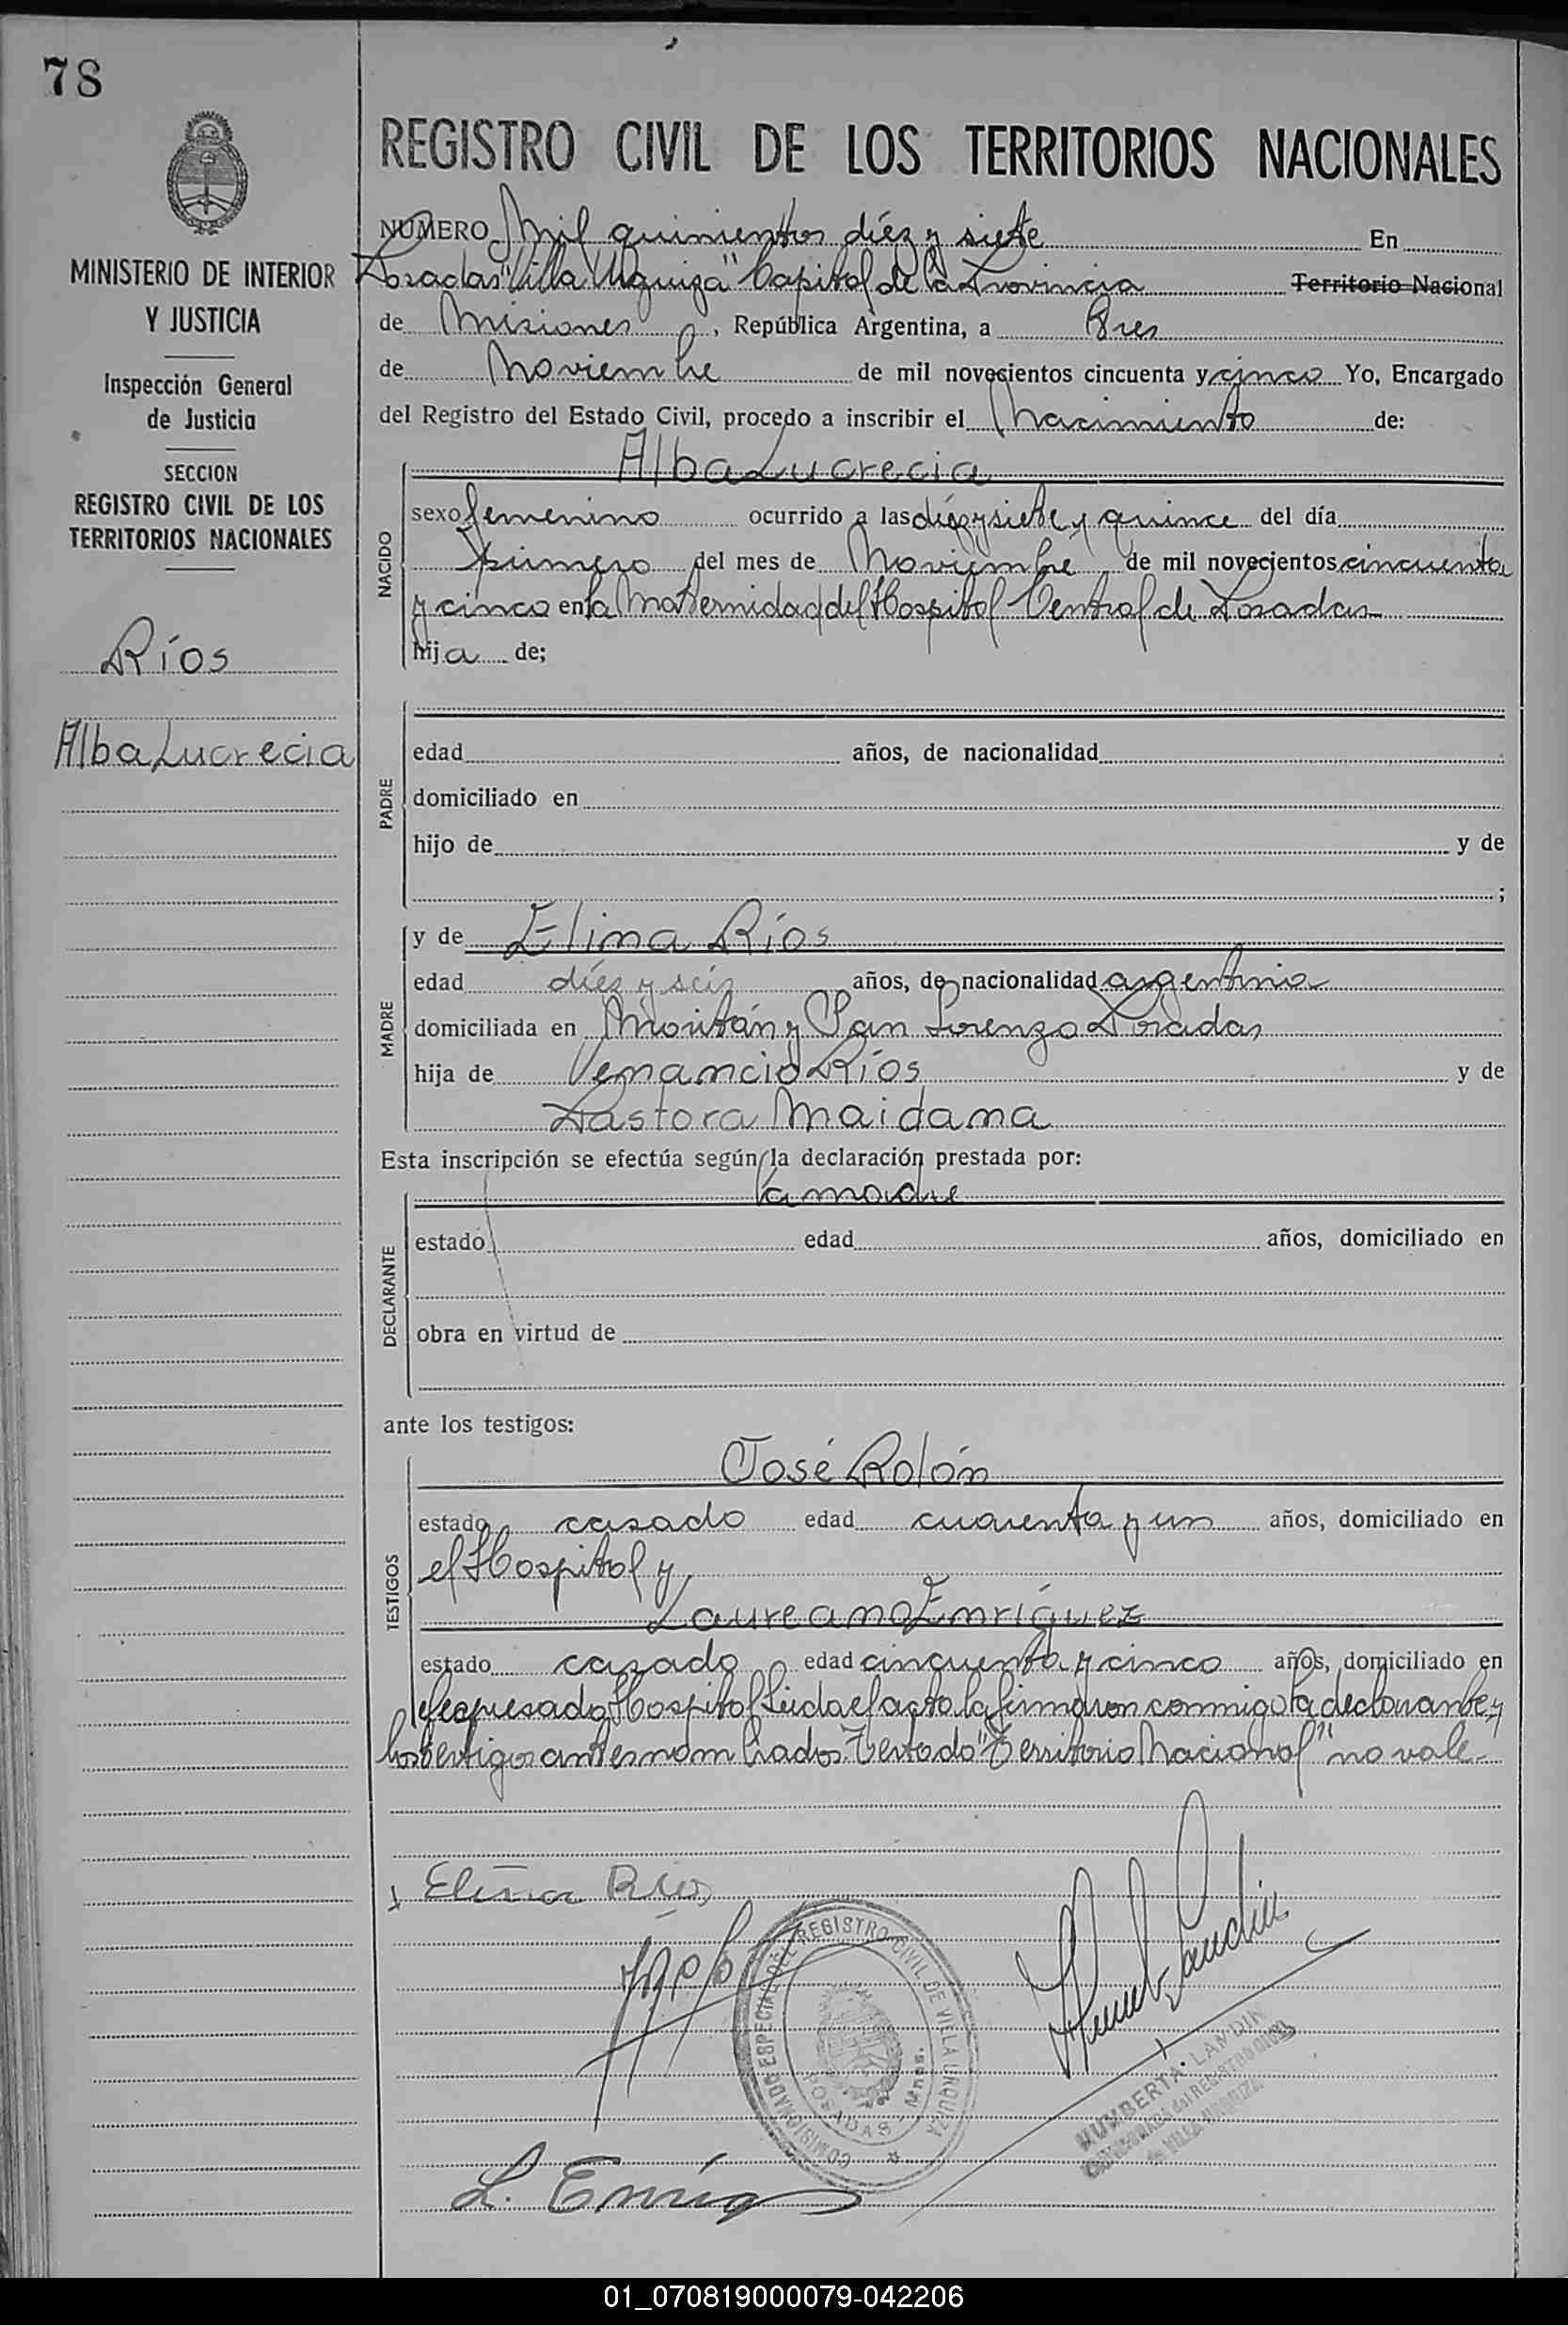 78
REGISTRO CIVIL DE LOS TERRITORIOS NACIONALES
MINISTERIO DE INTERIOR
Y JUSTICIA
Inspección General
de Justicia
SECCION
REGISTRO CIVIL DE LOS
TERRITORIOS NACIONALES
Ríos
Alba Lucrecia
NUMERO Mil quinientos diéz y siete En
Posadas "Villa Urquiza" Capital de la Provincia Territorio Nacional
de Misiones, República Argentina, a Tres
de Noviembre de mil novecientos cincuenta y cinco Yo, Encargado
del Registro del Estado Civil, procedo a inscribir el Nacimiento de:
NACIDO
Alba Lucrecia
sexo femenino ocurrido a las diéz y siete y quince del día
primero del mes de Noviembre de mil novecientos cincuenta
y cinco en la Maternidad del Hospital Central de Posadas
hija de;
PADRE
edad años, de nacionalidad
domiciliado en
hijo de y de
;
MADRE
y de Elima Ríos
edad diéz y seis años, de nacionalidad argentina
domiciliada en y San Lorenzo Posadas
hija de Venancio Ríos y de
Pastora Maidana
Esta inscripción se efectúa según la declaración prestada por:
DECLARANTE
la madre
estado edad años, domiciliado en
obra en virtud de
ante los testigos:
TESTIGOS
José Rolón
estado casado edad cuarenta y un años, domiciliado en
el Hospital y
Laureano Enríquez
estado casado edad cincuenta y cinco años, domiciliado en
el expresado Hospital Leida el acta la firmaron conmigo la declarante y
los testigos antes nombrados. Testado "Territorio Nacional" no vale-
Elima Ríos
COMISIONADO ESPECIAL DEL REGISTRO CIVIL DE VILLA URQUIZA
POSADAS - Mnes.
HUMBERTA LANDIN
ENCARGADA del REGISTRO CIVIL
de VILLA URQUIZA
L. Enríq
01_070819000079-042206